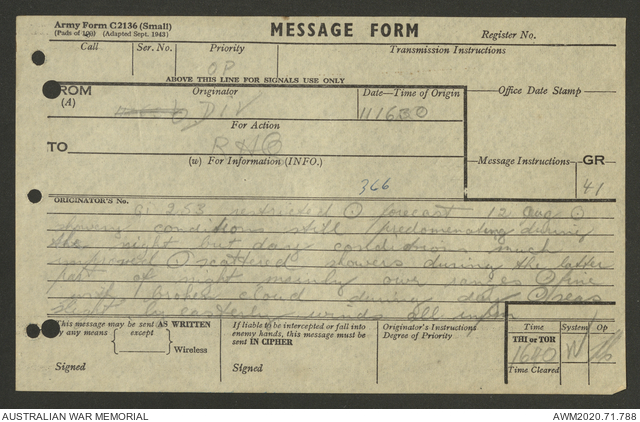 Army Form C2136 (Small)
(Pads of 100) (Adapted Sept. 1943)
MESSAGE FORM
Register No.
Call
Ser. No.
Priority
Transmission Instructions
OP
ABOVE THIS LINE FOR SIGNALS USE ONLY
FROM
(A)
Originator
Date—Time of Origin
Office Date Stamp
6 DIV
111630
For Action
TO
RHQ
(w) For Information (INFO.)
Message Instructions
GR
366
41
ORIGINATOR'S No.
G. 253 restricted ⊙ forecast 12 Aug ⊙
showery conditions still predominating during
the night but day conditions much
improved ⊙ scattered showers during the latter
part of night mainly over ranges ⊙ fine
with broken cloud during day ⊙ seas
slight easterly winds all infm
This message may be sent AS WRITTEN
by any means except
Wireless
Signed
If liable to be intercepted or fall into
enemy hands, this message must be
sent IN CIPHER
Signed
Originator's Instructions
Degree of Priority
Time
System
Op
THI or TOR
1640
W
Time Cleared
AUSTRALIAN WAR MEMORIAL
AWM2020.71.788